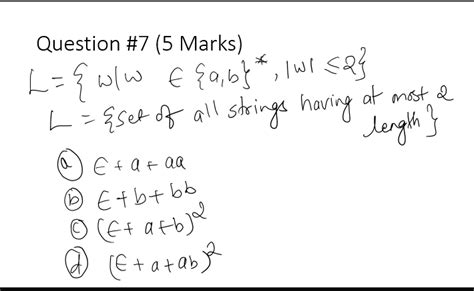 Question #7 (5 Marks)
L = { w | w ∈ {a,b}*, |w| ≤ 2}
L = {set of all strings having at most 2
length}
(a) ϵ + a + aa
(b) ϵ + b + bb
(c) (ϵ + a + b)²
(d) (ϵ + a + ab)²